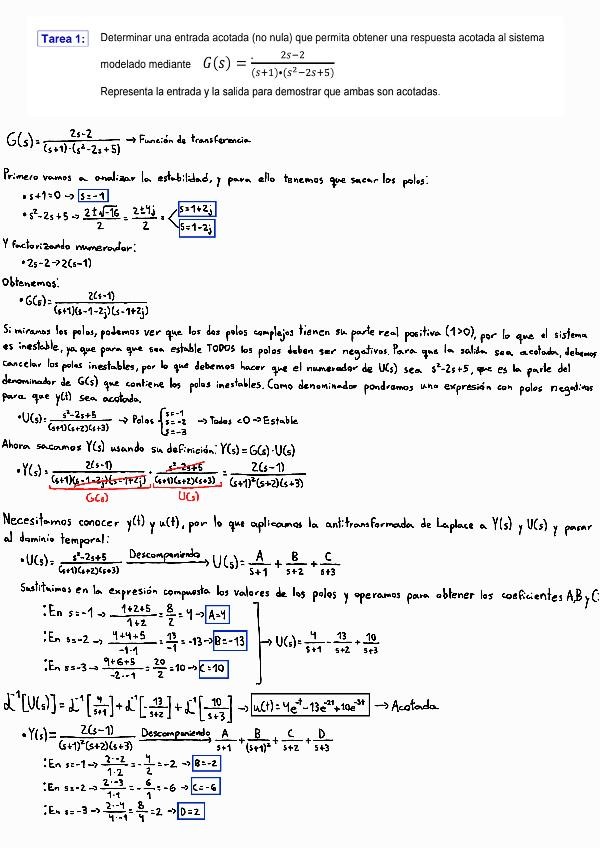 Tarea 1: Determinar una entrada acotada (no nula) que permita obtener una respuesta acotada al sistema
modelado mediante G(s) = 2s−2 / (s+1)•(s²−2s+5)
Representa la entrada y la salida para demostrar que ambas son acotadas.
G(s) = 2s-2 / (s+1)·(s²-2s+5) → Función de transferencia
Primero vamos a analizar la estabilidad, y para ello tenemos que sacar los polos:
• s+1=0 → s=-1
• s²-2s+5 → 2±√-16 / 2 = 2±4j / 2 = < s=1+2j
s=1-2j
Y factorizando numerador:
• 2s-2 → 2(s-1)
Obtenemos:
• G(s) = 2(s-1) / (s+1)(s-1-2j)(s-1+2j)
Si miramos los polos, podemos ver que los dos polos complejos tienen su parte real positiva (1>0), por lo que el sistema
es inestable, ya que para que sea estable TODOS los polos deben ser negativos. Para que la salida sea acotada, debemos
cancelar los polos inestables, por lo que debemos hacer que el numerador de U(s) sea s²-2s+5, que es la parte del
denominador de G(s) que contiene los polos inestables. Como denominador pondremos una expresión con polos negativos
para que y(t) sea acotada.
• U(s) = s²-2s+5 / (s+1)(s+2)(s+3) → Polos { s=-1 s=-2 s=-3 → Todos <0 → Estable
Ahora sacamos Y(s) usando su definición: Y(s) = G(s)·U(s)
• Y(s) = 2(s-1) / (s+1)(s-1-2j)(s-1+2j) · s²-2s+5 / (s+1)(s+2)(s+3) = 2(s-1) / (s+1)²(s+2)(s+3)
G(s) U(s)
Necesitamos conocer y(t) y u(t), por lo que aplicamos la antitransformada de Laplace a Y(s) y U(s) y pasar
al dominio temporal:
• U(s) = s²-2s+5 / (s+1)(s+2)(s+3) Descomponiendo → U(s) = A / s+1 + B / s+2 + C / s+3
Sustituimos en la expresión compuesta los valores de los polos y operamos para obtener los coeficientes A, B y C:
: En s=-1 → 1+2+5 / 1·2 = 8 / 2 = 4 → A=4
: En s=-2 → 4+4+5 / -1·1 = 13 / -1 = -13 → B=-13 → U(s) = 4 / s+1 - 13 / s+2 + 10 / s+3
: En s=-3 → 9+6+5 / -2·-1 = 20 / 2 = 10 → C=10
ℒ⁻¹[U(s)] = ℒ⁻¹[4 / s+1] + ℒ⁻¹[-13 / s+2] + ℒ⁻¹[10 / s+3] → u(t) = 4e⁻ᵗ - 13e⁻²ᵗ + 10e⁻³ᵗ → Acotada
• Y(s) = 2(s-1) / (s+1)²(s+2)(s+3) Descomponiendo → A / s+1 + B / (s+1)² + C / s+2 + D / s+3
: En s=-1 → 2·-2 / 1·2 = -4 / 2 = -2 → B=-2
: En s=-2 → 2·-3 / 1·1 = -6 / 1 = -6 → C=-6
: En s=-3 → 2·-4 / 4·-1 = 8 / 4 = 2 → D=2